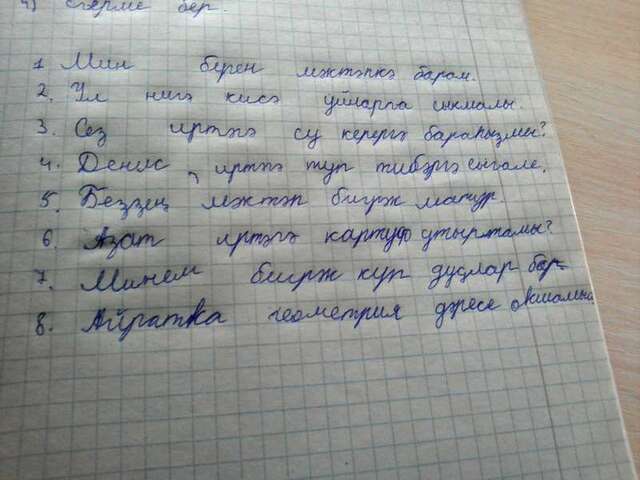 4) егерме бер.
1 Мин берен мәктәпкә барам.
2. Ул нигә кисә уйнарга сыкмалы.
3. Сез иртәгә су керергә бараһызмы?
4. Денис, иртәгә туп тибәргә сыгале.
5. Беҙҙең мәктәп бигрәк матур.
6. Азат иртәгә картуф утыртамы?
7. Минем бигрәк күп дуҫлар бар
8. Айратка геометрия дәресе окшамай